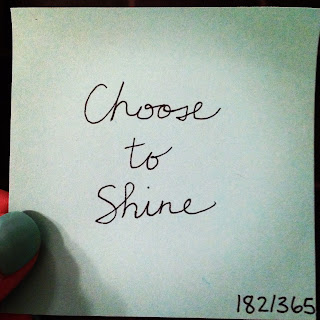 Choose
to
Shine
182/365